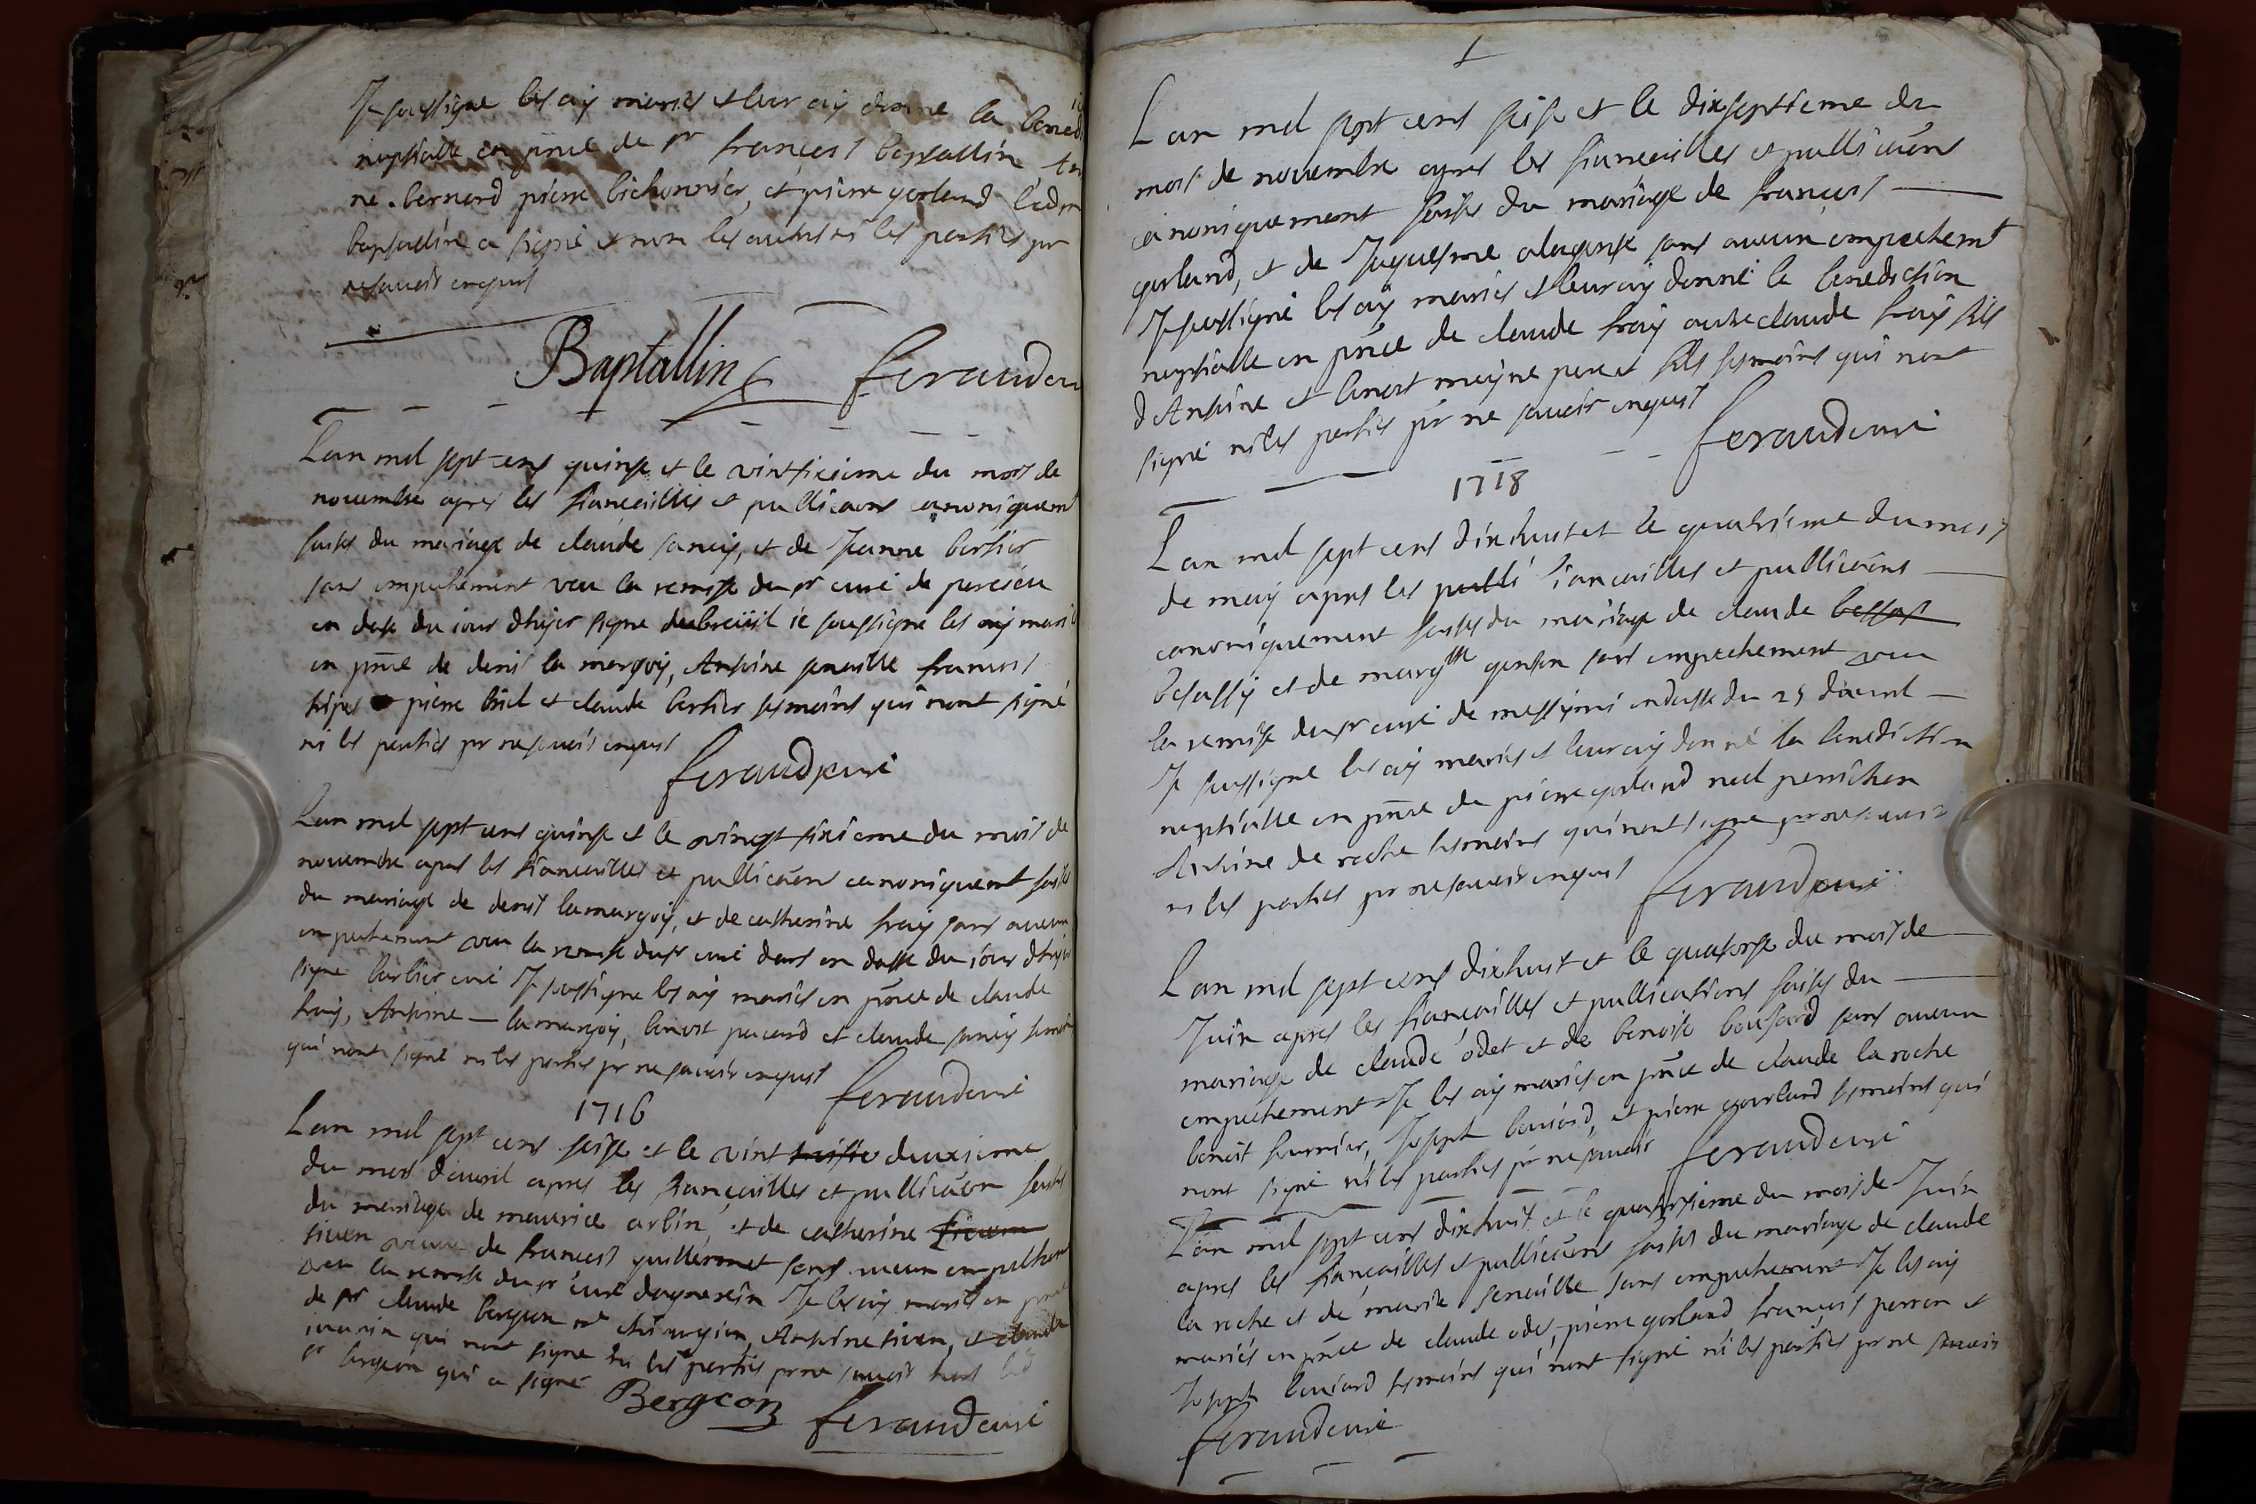 Je soussigne les ay mariés et leur ay donne la bened
nuptialle en pñce de sr francois baptallin
ne bernard pierre bichonnier, et pierre gorland ledit
baptallin a signé et non les autres ni les parties pr
ne savoir enquis
Baptallin feraud cu
Lan mil sept cens quinse et le vintsixieme du mois de
novembre apres les fiancailles et pullicaons canoniquemt
faites du mariage de claude janey, et de Jeanne bertier
sans empechement veu la remise du sr curé de
en date du iour dhyer signe dubreüil ie soussigne les ay marié
en pñce de denis la margoy, Antoine senaille francois
pierre et claude bertier temoins qui nont signé
ni les parties pr ne savoir enquis
feraud curé
Lan mil sept cens quinse et le vingt sixieme du mois de
novembre apres les fiancailles et pullicaons canoniquemt faites
du mariage de denis lamargoy, et de catherine fray sans aucun
empechement veu la remise du sr curé dars en datte du iour dhyer
signe curé Je soussigne les ay mariés en pñce de claude
fray, Antoine - lamargoy, benoist pacard et claude janey temoins
qui nont signé ni les parties pr ne savoir enquis
feraud curé
1716
Lan mil sept cens seise et le vint deuxieme
du mois davril apres les fiancailles et pullicaon faites
du mariage de maurice arbin, et de catherine
tiven veuve de francois guillermet sans aucun empechemt
veu la remise du sr curé dagnerein Je les ay mariés en pñce
de sr claude bergeon mᵉ chirurgien, Antoine tiven, et claude
qui nont signe ni les parties pr ne savoir hors led
sr bergeon qui a signé
Bergeon feraud curé
Lan mil sept cens seise et le dixseptieme du
mois de novembre apres les fiancailles et pullicaons
canoniquement faites du mariage de francois
gorland, et de sans aucun empechemt
Je soussigné les ay mariés et leur ay donné la benediction
nuptialle en pñce de claude fray autre claude fray fils
dAntoine et benoit moyne pere et fils temoins qui nont
signé ni les parties pr ne savoir enquis
feraud curé
1718
Lan mil sept cens dixhuit et le quatrieme du mois
de may apres les pulli fiancailles et pullicaons
canoniquement faites du mariage de claude
besassy et de margtte sans empechement veu
la remise du sr curé de messimi en datte du 25 davril
Je soussigne les ay mariés et leur ay donné la benediction
nuptialle en pñce de pierre gorland noel perrichon
Antoine de roche temoins qui nont signe pr ne savoir
ni les parties pr ne savoir enquis
feraud curé
Lan mil sept cens dixhuit et le quatorse du mois de
Juin apres les fiancailles et pullications faites du
mariage de claude odet et de benoite boussard sans aucun
empechement Je les ay mariés en pñce de claude la roche
benoit fournier, Joseph boviard, et pierre gorland temoins qui
nont signé ni les parties pr ne savoir
feraud curé
Lan mil sept cens dixhuit et le quatorsieme du mois de Juin
apres les fiancailles et pullicaons faites du mariage de claude
la roche et de marie senaille sans empechement Je les ay
mariés en pñce de claude odet, pierre gorland francois perron et
Joseph boviard temoins qui nont signé ni les parties pr ne savoir
feraud curé